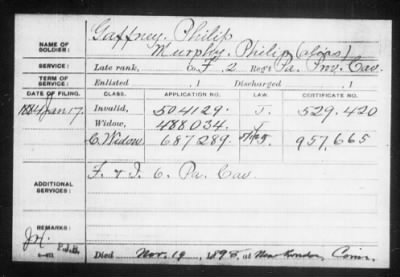 NAME OF SOLDIER: Gaffney, Philip
Murphy, Philip (alias)
SERVICE: Late rank, Co. F, 2 Reg't Pa. Prov. Cav.
TERM OF SERVICE: Enlisted , 1 Discharged , 1
DATE OF FILING. CLASS. APPLICATION NO. LAW. CERTIFICATE NO.
1884 Jan 17. Invalid, 504129. J. 529.420
Widow, 488034.
C. Widow, 687289. 957665
ADDITIONAL SERVICES: F. & I. 6. Pa. Cav
REMARKS:
Died Nov. 19, 1898, at New London, Conn.